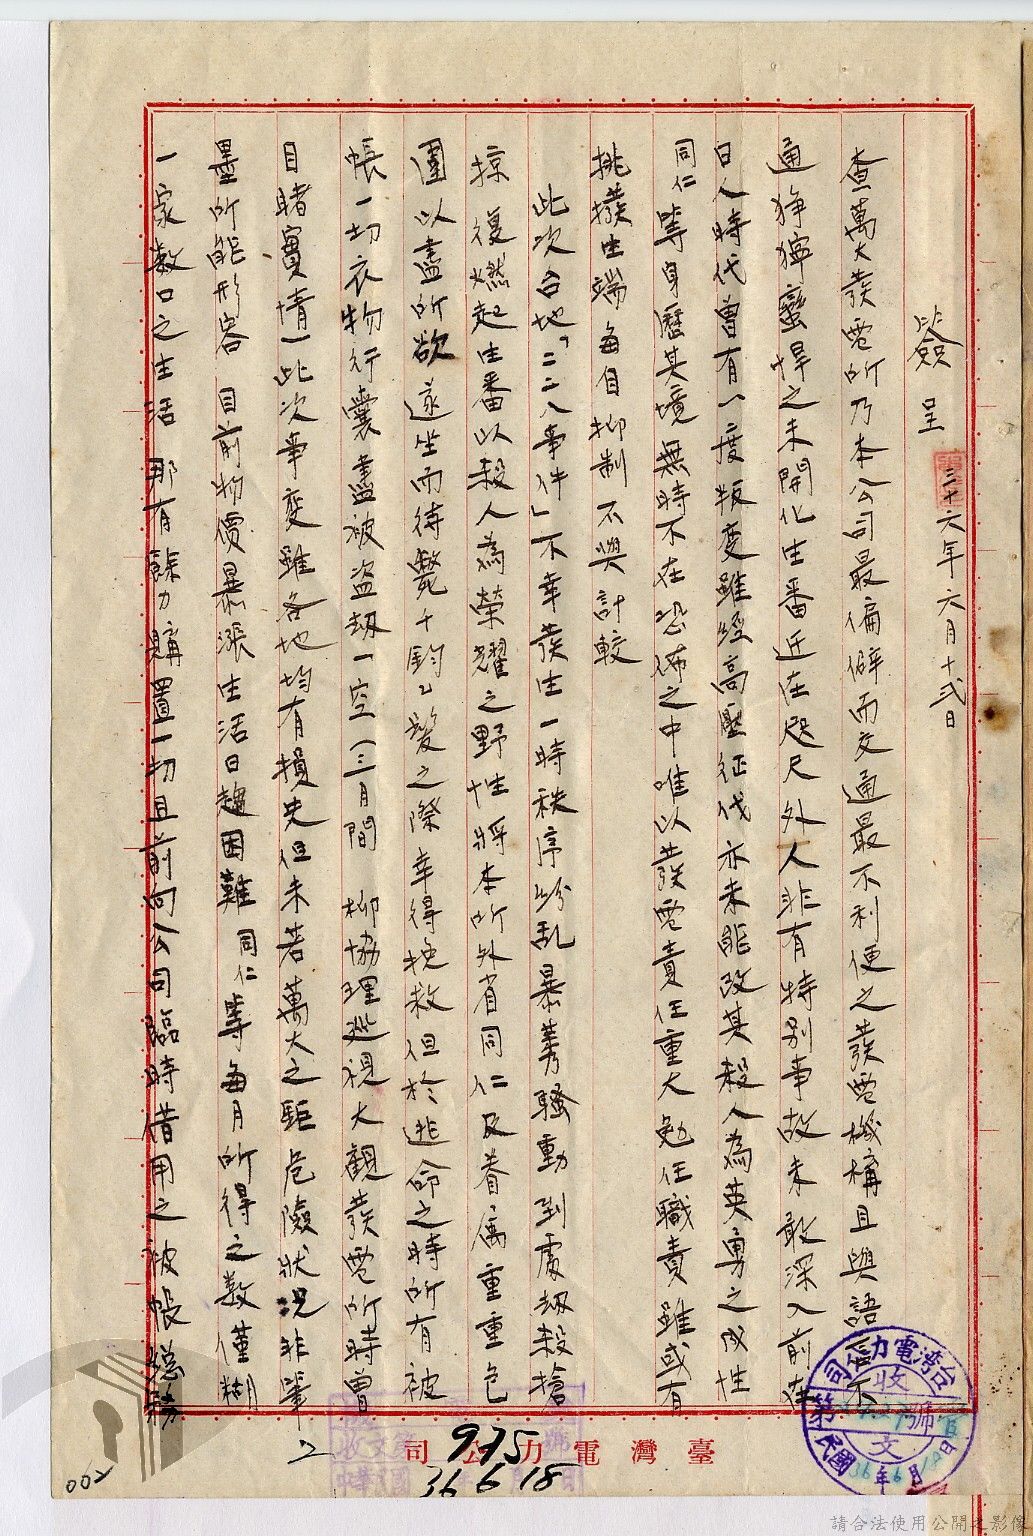 簽呈 三十六年六月十弍日
查萬大發電所乃本公司最偏僻而交通最不利便之發電機構且與語言不
通猙獰蠻悍之未開化生番近在咫尺外人非有特別事故未敢深入前在
日人時代曾有一二度叛變雖經高壓征伐亦未能改其殺人為英勇之成性
同仁等身歷其境無時不在恐怖之中唯以發電責任重大勉任職責雖或有
挑撥生端每自抑制不與計較
此次台地「二二八事件」不幸發生一時秩序紛亂暴莠騷動到處劫殺搶
掠復燃起生番以殺人為榮耀之野性將本所外省同仁及眷属重重包
圍以盡所欲遂坐而待斃千鈞乙髮之際幸得挽救但於逃命之時所有被
帳一切衣物行囊盡被盜劫一空（三月間 柳協理巡視大觀發電所時曾
目睹實情）此次事變雖各地均有損失但未若萬大之鉅危險狀況非筆
墨所能形容 目前物價暴漲生活日趨困難 同仁等每月所得之数僅糊
一家数口之生活 那有餘力購置一切且前向公司臨時借用之被帳總務
臺灣電力公司
台湾電力公司
收文
第 號
民國36年6月 日
收文第 號
中華民國 年 月 日
975
36 6 18
2
002
請合法使用公開之影像